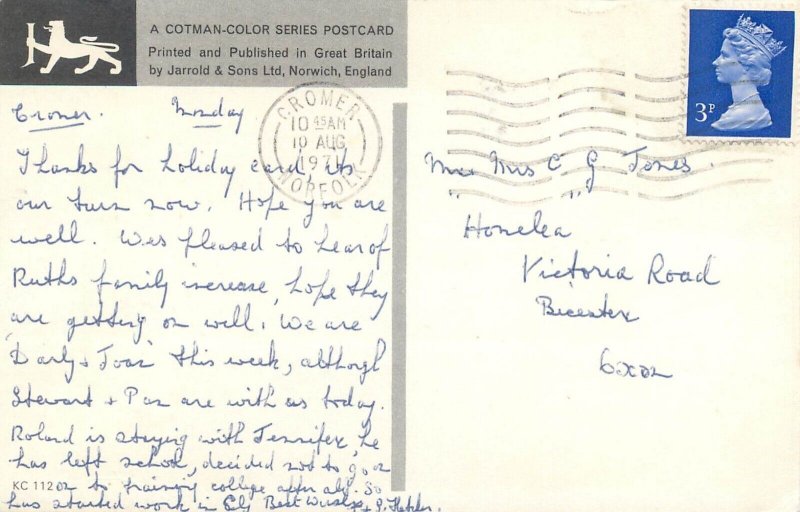 A COTMAN-COLOR SERIES POSTCARD
Printed and Published in Great Britain
by Jarrold & Sons Ltd, Norwich, England
Cromer. Monday
Thanks for holiday card, its
our turn now. Hope you are
well. Was pleased to hear of
Ruths family increase, hope they
are getting on well. We are
'Darly & Joan' this week, although
Stewart & Pam are with us today.
Roland is staying with Jennifer, he
has left school, decided not to go on
on to training college after all. So
has started work in City Best Wishes
KC 112
CROMER
10 45AM
10 AUG
1971
NORFOLK
3P
Mr & Mrs C. G. Jones.
Homelea
Victoria Road
Bicester
Oxon